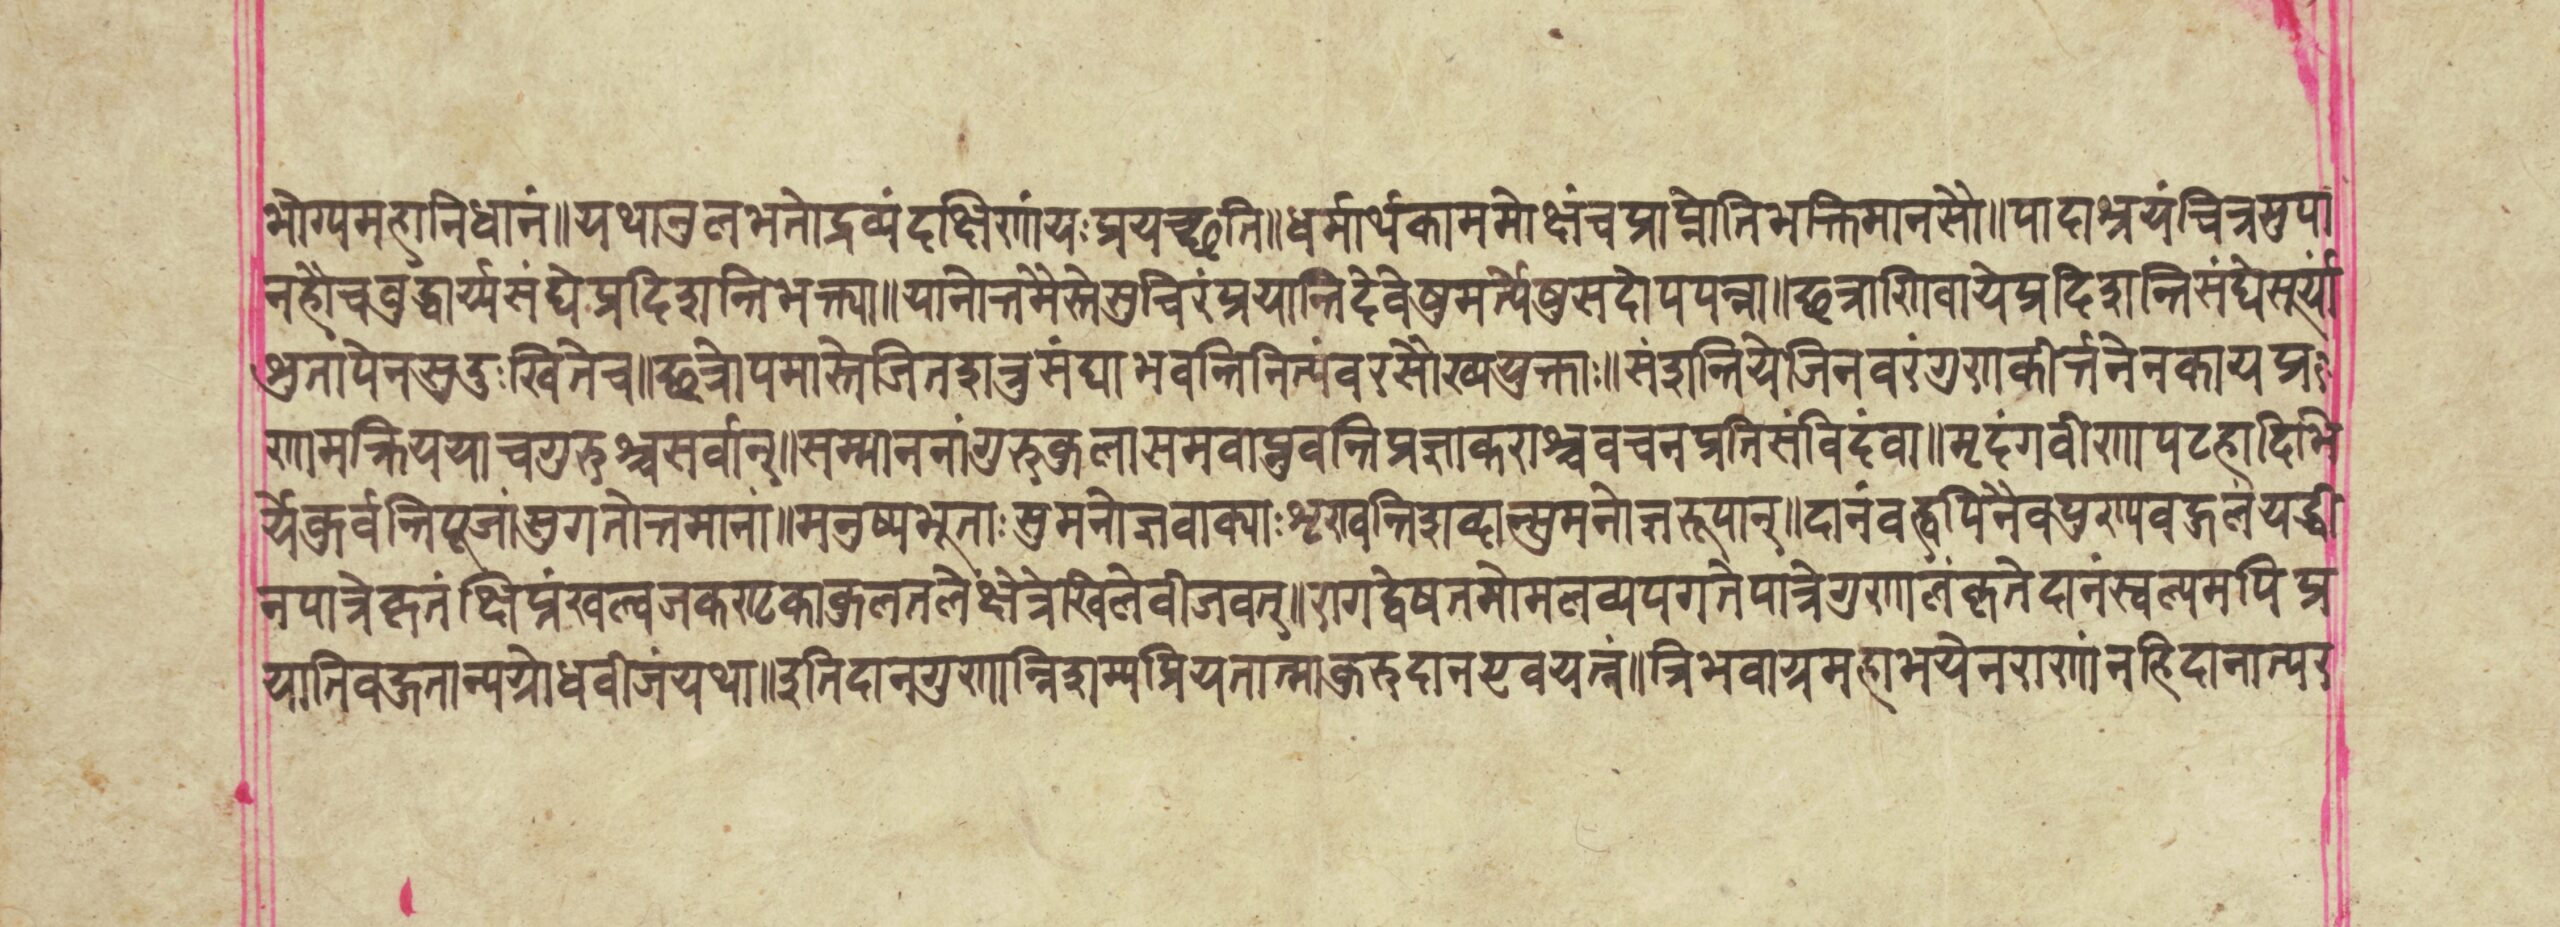 भोग्यमहानिधानं॥यथानुलभतोद्रव्यंदक्षिणांयःप्रयच्छति॥धर्मार्थकाममोक्षंचप्राप्नोतिभक्तिमानसौ॥पादाश्रयंचित्रमुपा
नहौचवुद्धार्य्यसंघेप्रदिशन्तिभक्त्या॥यानोत्तमैस्तेसुचिरंप्रयान्तिदेवेषुमर्त्येषुसदोपपन्ना॥छत्राणिवायेप्रदिशन्तिसंघेसूर्यां
शुतापेनसुदुःखितेच॥छत्रोपमास्तेजितशत्रुसंघाभवन्तिनित्यंवरसौख्ययुक्ताः॥संशन्तियेजिनवरंगुणकीर्त्तनेनकायप्र
णामक्रिययाचगुरुश्चसर्वान्॥सम्माननांगुरुकुलासमवाप्नुवन्तिप्रज्ञाकराश्चवचनप्रतिसंविदंवा॥मृदंगवीणापटहादिभि
र्येकुर्वन्तिपूजांसुगतोत्तमानां॥मनुष्यभूताःसुमनोज्ञवाक्याःशृण्वन्तिशब्दान्सुमनोज्ञरूपान्॥दानंवह्वपिनैवपुण्यवहुलंयद्धी
नपात्रेकृतंक्षिप्रंखल्वजकण्टकाकुलतलेक्षेत्रेखिलेवीजवत्॥रागद्वेषतमोमलव्यपगतेपात्रेगुणालंकृतेदानंस्वल्पमपिप्र
यातिवहुतान्यग्रोधवीजंयथा॥इतिदानगुणान्निशम्यप्रियतात्माकुरुदानएवयत्नं॥त्रिभवाग्रमहाभयेनराणांनहिदानात्पर